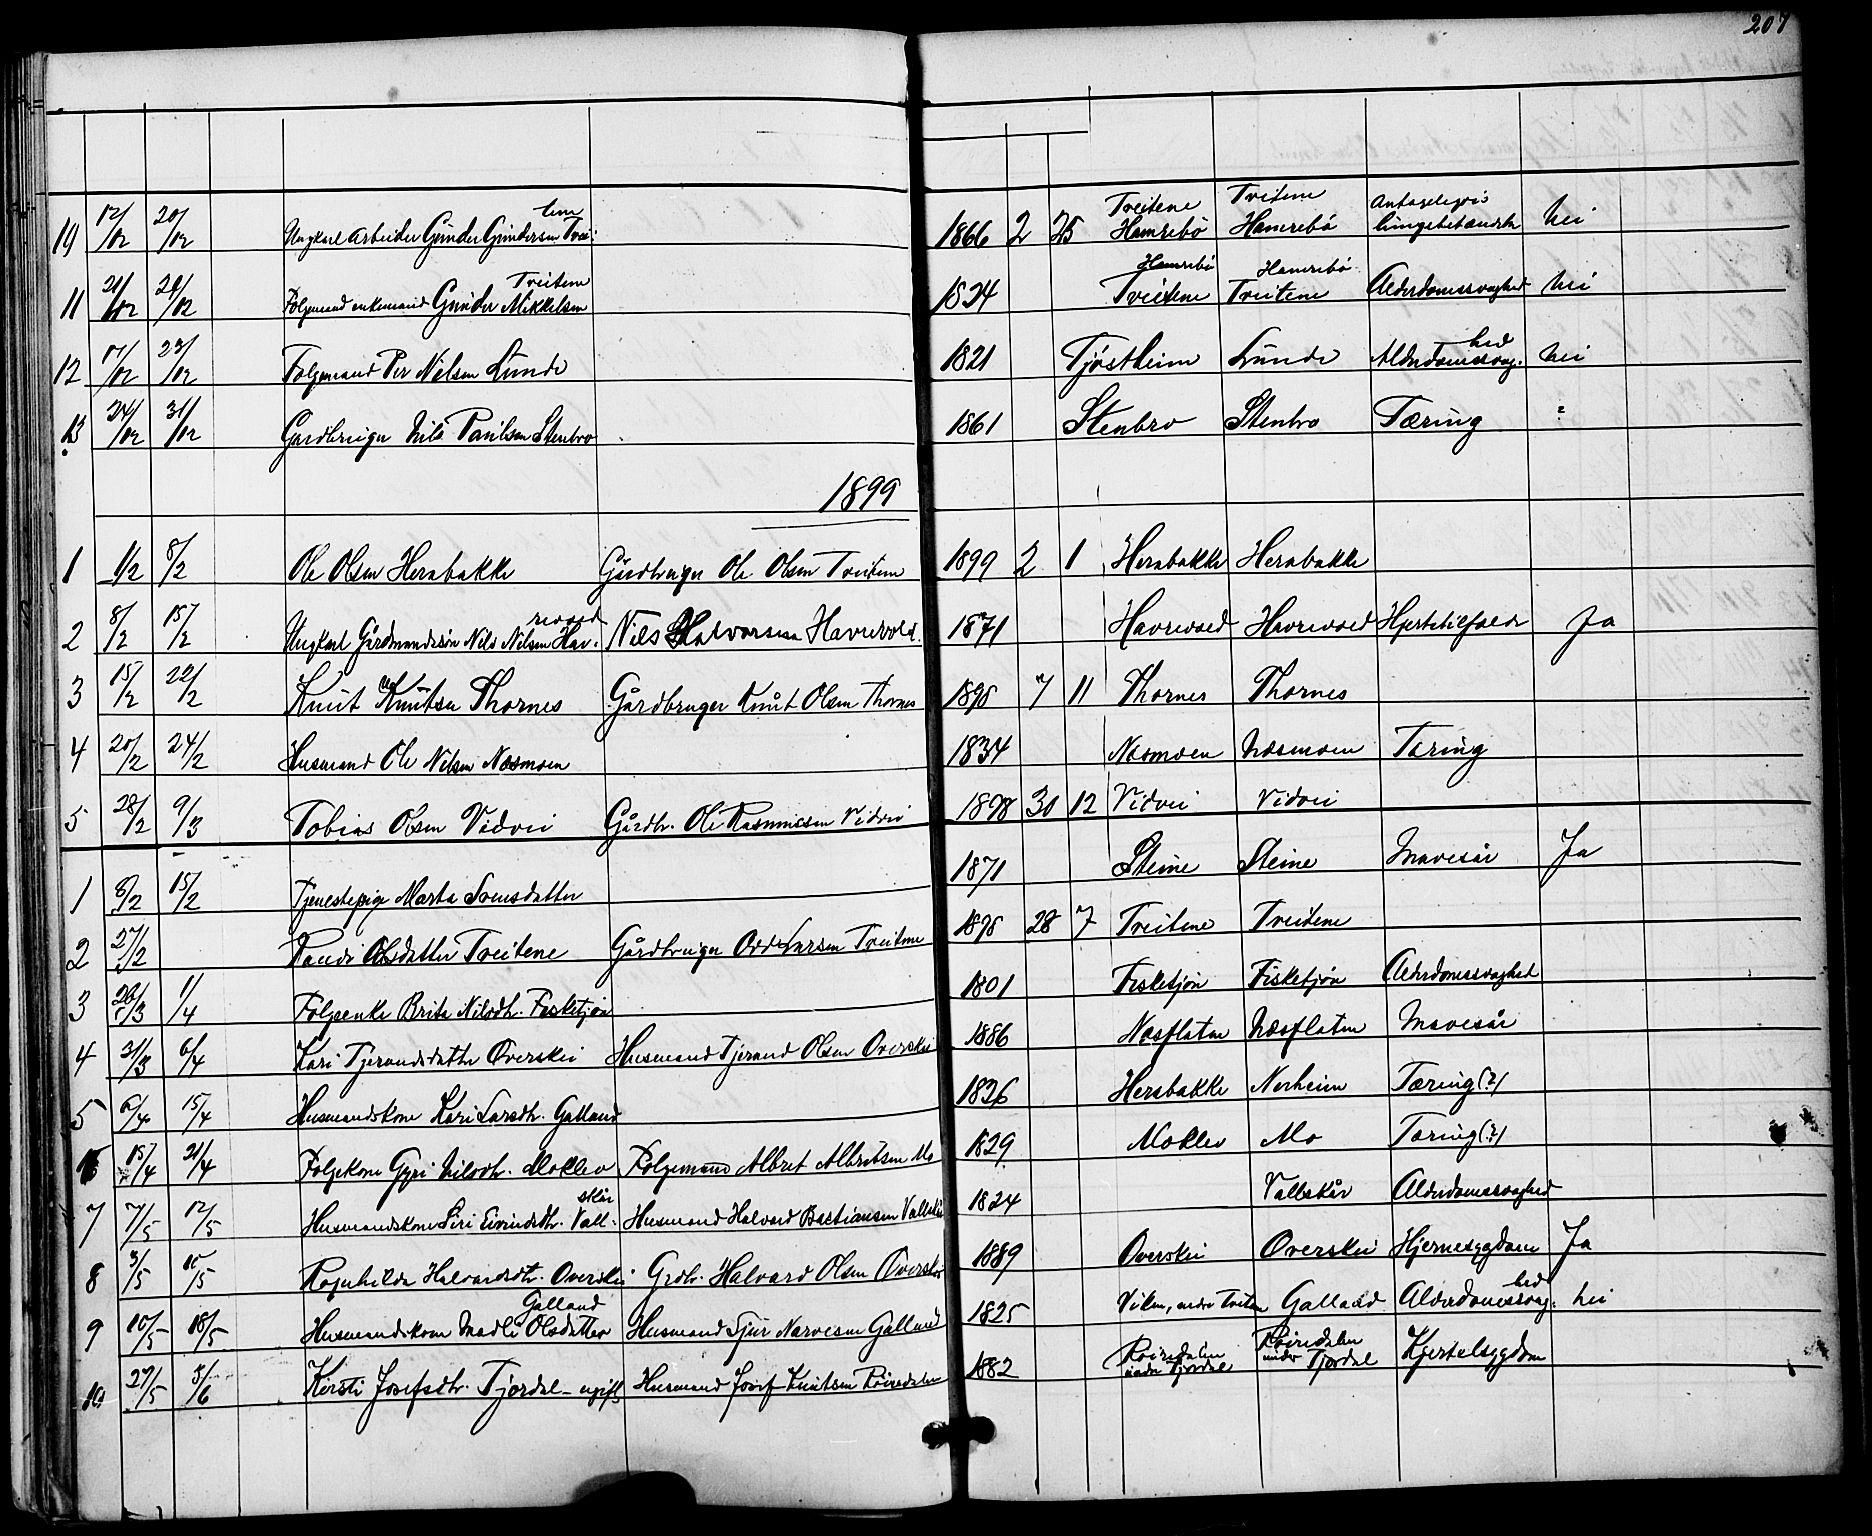 207
19 12/12 20/12 Ungkarl Arbeider Gunder Gundersen Trei- tene 1866 2 25 Treitene Hamrebø Treitene Hamrebø Antageligvis lungebetændelse Nei
11 21/12 28/12 Følgemand enkemand Gunder Mikkelsen Treitene 1824 Hamrebø Treitene Hamrebø Treitene Alderdomssvaghed Nei
12 17/12 23/12 Følgemand Per Nilsen Lunde 1821 Tjøstheim Lunde Alderdomssvag- hed Nei
13 24/12 31/12 Gardbruger Nils Paulsen Stenbro 1861 Stenbro Stenbro Tæring ?
1899
1 1/2 8/2 Ole Olsen Herabakke Gårdbruger Ole Olsen Treitene 1899 2 1 Herabakke Herabakke
2 8/2 15/2 Ungkarl Gårdmandssøn Nils Nilsen Hav- revoed Nils Halvorsen Havrevold. 1871 Havrevoed Havrevoed Hjertetilfælde Ja
3 15/2 22/2 Knut Knutsen Thornes Gårdbruger Knut Olsen Thornes 1898 7 11 Thornes Thornes
4 20/2 24/2 Husmand Ole Nilsen Næsmoen 1834 Næsmoen Næsmoen Tæring
5 28/2 9/3 Tobias Olsen Vidvei Gårdbr. Ole Rasmussen Vidvei 1898 30 12 Vidvei Vidvei
1 8/2 15/2 Tjenestepige Marta Svensdatter 1871 Steine Steine Mavesår Ja
2 27/2 Randi Olsdatter Treitene Gårdbruger Odd Larsen Treitene 1898 28 7 Treitene Treitene
3 26/3 1/4 Følgeenke Brita Nilsdtr. Fisketjøn 1801 Fisketjøn Fisketjøn Alderdomssvaghed
4 31/3 6/4 Kari Tjerandsdatter Overskei Husmand Tjerand Olsen Overskei 1886 Næsflaten Næsflaten Mavesår
5 6/4 15/4 Husmandskone Kari Larsdtr. Galland 1826 Herabakke Nerheim Tæring (?)
6 15/4 21/4 Følgekone Gyri Nilsdtr. Moklev Følgemand Albret Albretsen Mo 1829 Moklev Mo Tæring (?)
7 7/5 12/5 Husmandskone Siri Eivindsdtr. Vall- skår Husmand Halvard Bastiansen Vallskår 1824 Vallskår Alderdomssvaghed
8 3/5 10/5 Ragnhilda Halvardsdtr. Overskei Grdbr. Halvard Olsen Overskei 1889 Overskei Overskei Hjernesygdom Ja
9 10/5 18/5 Husmandskone Madli Olsdatter Galland Husmand Sjur Narvesen Galland 1825 Viken, nedre Treiten Galland Alderdomssvag- hed Nei
10 27/5 5/6 Kirsti Josefsdtr. Tjordal - ugift Husmand Josef Knutsen Röiredalen 1882 Röiredalen under Tjordal Röiredalen under Tjordal Kjertelsygdom